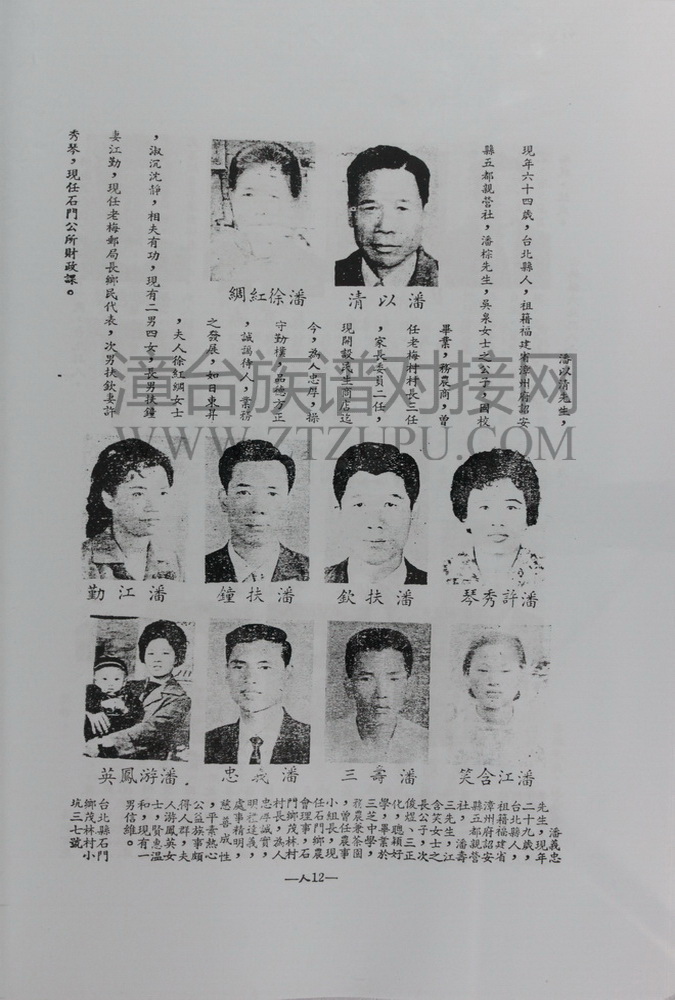 潘以清先生，
現年六十四歲，台北縣人，祖籍福建省漳州府詔安
縣五都親營社，潘棕先生，吳泉女士之公子，國校
畢業，務農商，曾
任老梅村村長三任
，家長委員二任，
現開設民生商店迄
今，為人忠厚，操
守勤樸，品德方正
，誠謁待人，業務
之發展，如日東昇
，夫人徐紅綢女士
，淑沉沈靜，相夫有功，現有二男四女，長男扶鐘
妻江勤，現任老梅郵局長鄉民代表，次男扶欽妻許
秀琴，現任石門公所財政課。
潘徐紅綢
潘以清
漳台族谱对接网
WWW.ZTZUPU.COM
潘江勤
潘扶鐘
潘扶欽
潘許秀琴
潘游鳳英
潘義忠
潘壽三
潘江含笑
潘義忠
先生，現年
二十九歲，
台北縣人，
祖籍福建省
漳州府詔安
縣五都親營
社，潘壽
三先生，江
含笑女士之
長公子，次
俊煜、三正
化，聰穎好
學，畢業於
三芝中學，
務農兼茶園
，曾任農事
小組長，現
任石門鄉農
會理事，石
門鄉茂林村
村長，為人
忠厚誠實，
明禮達義，
處事精明，
慈善成性
，平素熱心
公益族事頗
得人群，夫
人游鳳英女
士，賢惠溫
和，現有一
男信維。
台北縣石門
鄉茂林村小
坑三七號
—人12—